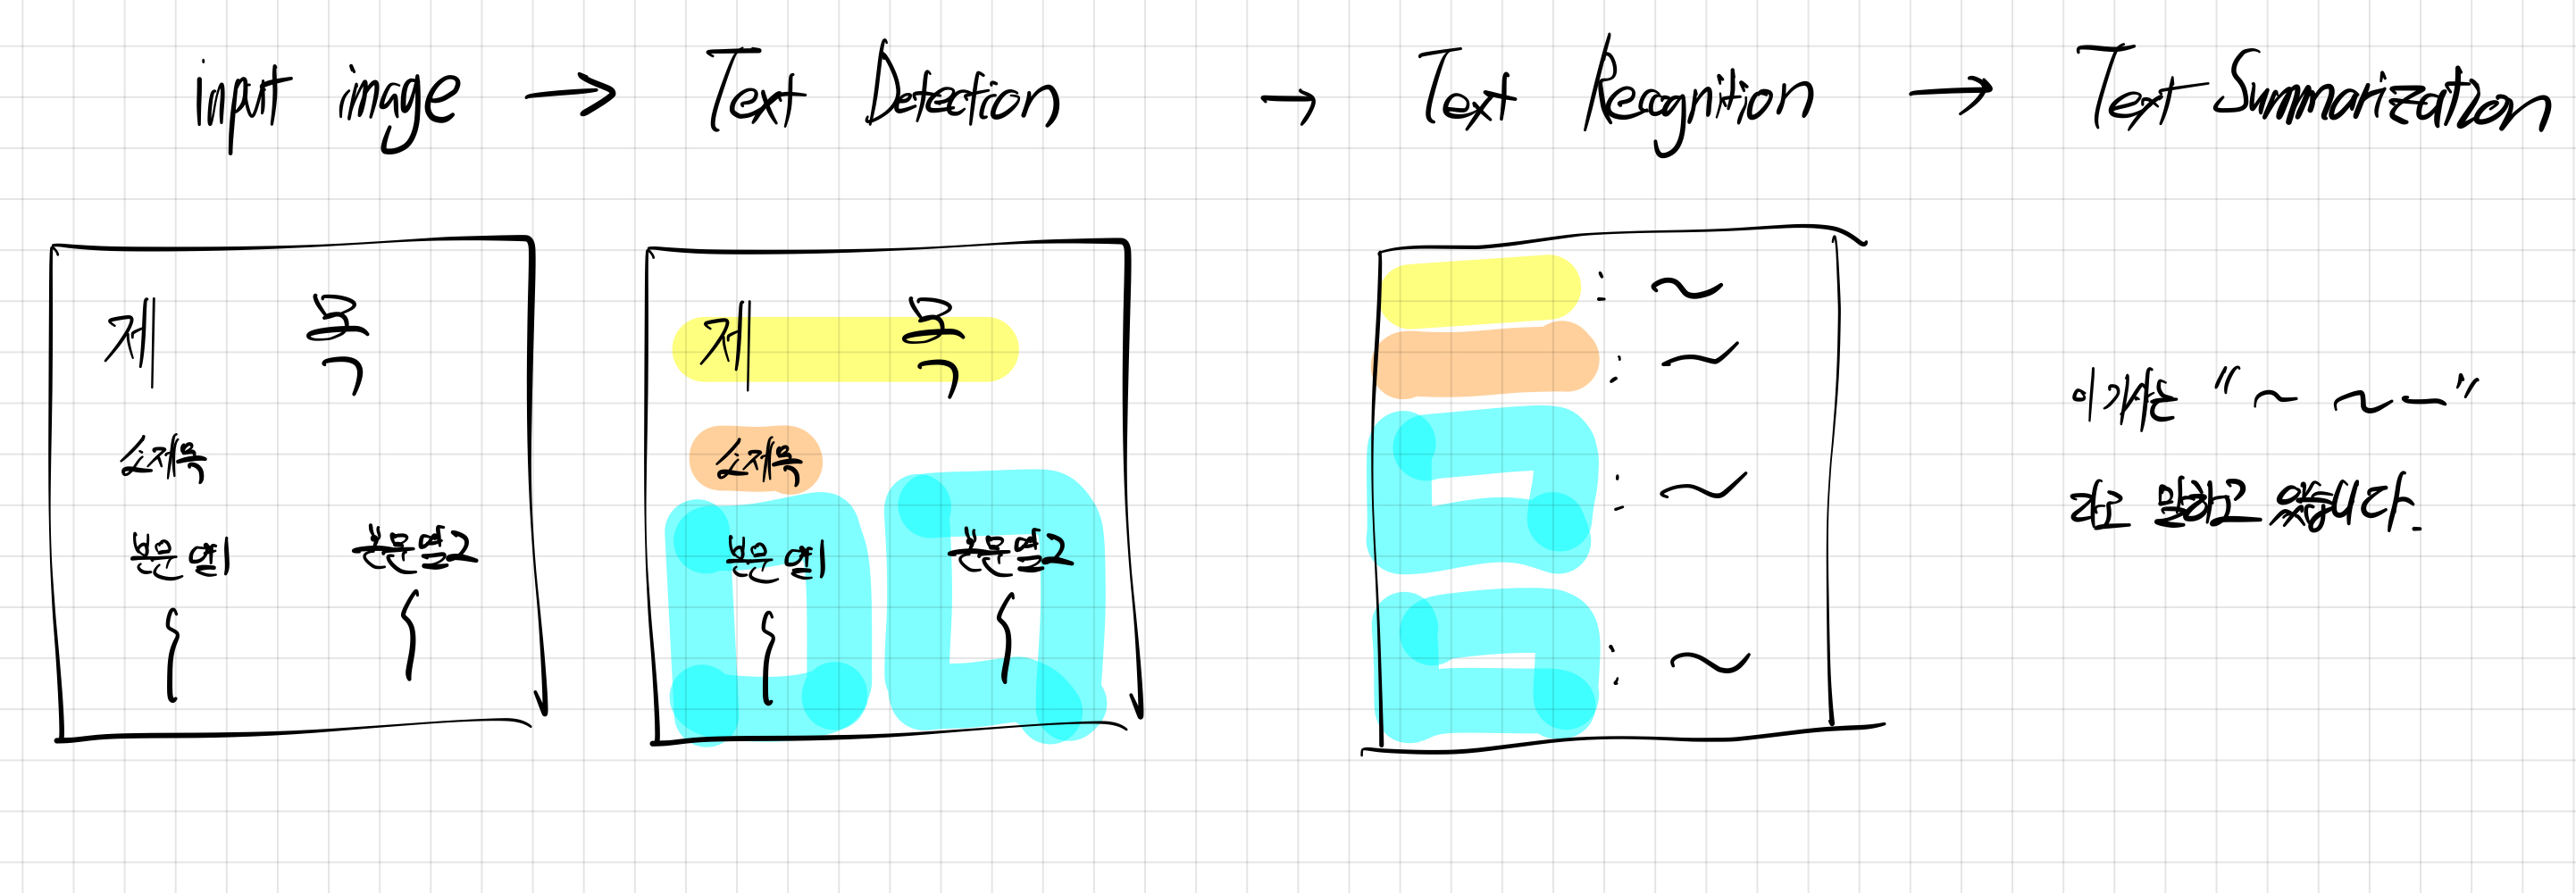 input image → Text Detection → Text Recognition → Text Summarization
제 목
소제목
본문 열1 본문열2
제 목
소제목
본문 열1 본문열2
: ~
: ~
: ~
: ~
이 기사는 "~ ~ ~"
라고 말하고 있습니다.